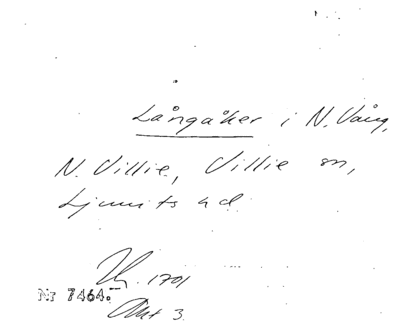 Långåker i N. Vång,
N. Villie, Villie sn,
Ljunits hd
1701
Nr 7464.
Akt 3.